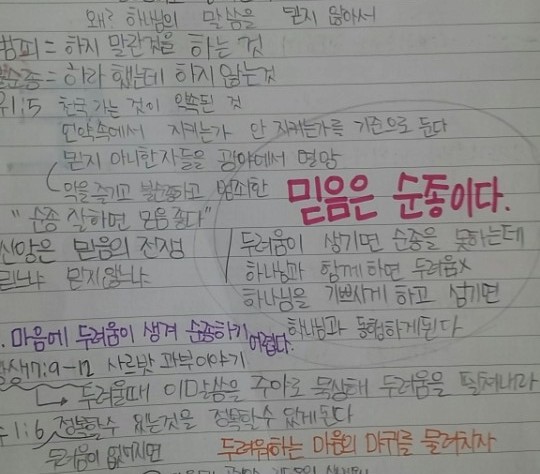 왜? 하나님의 말씀을 믿지 않아서
범죄 = 하지 말란것을 하는 것
불순종 = 하라 했는데 하지 않는것
1:5 천국 가는 것이 약속된 것
언약속에서 지키는가 안 지키는가를 기준으로 둔다
믿지 아니한 자들을 광야에서 멸망
악을 즐기고 불순종하고 범죄한
믿음은 순종이다.
"순종 잘하면 모음 좋다"
신앙은 믿음의 전쟁
믿느냐 믿지않느냐
두려움이 생기면 순종을 못하는데
하나님과 함께 하면 두려움x
하나님을 기쁘시게 하고 섬기면
하나님과 동행하게된다
. 마음에 두려움이 생겨 순종하기 어렵다.
7:9-12 사르밧 과부이야기
두려울때 이말씀을 주야로 묵상해 두려움을 떨쳐내라
1:6 정복할수 있는것을 정복할수 있게된다
두려움이 없어지면
두려워하는 마음의 마귀를 물리치자